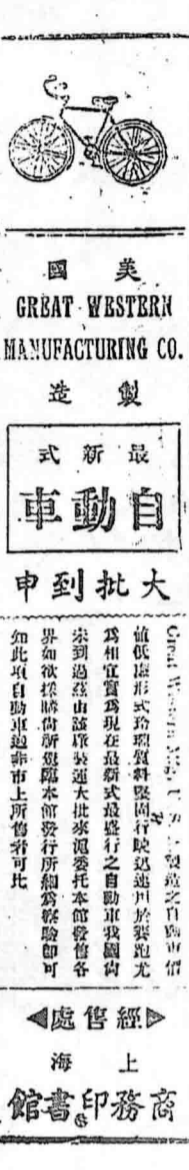 美國
GREAT WESTERN
MANUFACTURING CO.
製造
最新式
自動車
大批到申
Great Western 製造之自動車價
値低廉形式玲瓏質料堅固行駛迅速用於賽跑尤
爲相宜實爲現在最新式最盛行之自動車我國尙
未到過茲由該廠裝運大批來滬委托本館發售各
界如欲採購尙祈惠臨本館發行所細爲察驗卽可
知此項自動車迥非市上所售者可比
經售處
上海
商務印書館